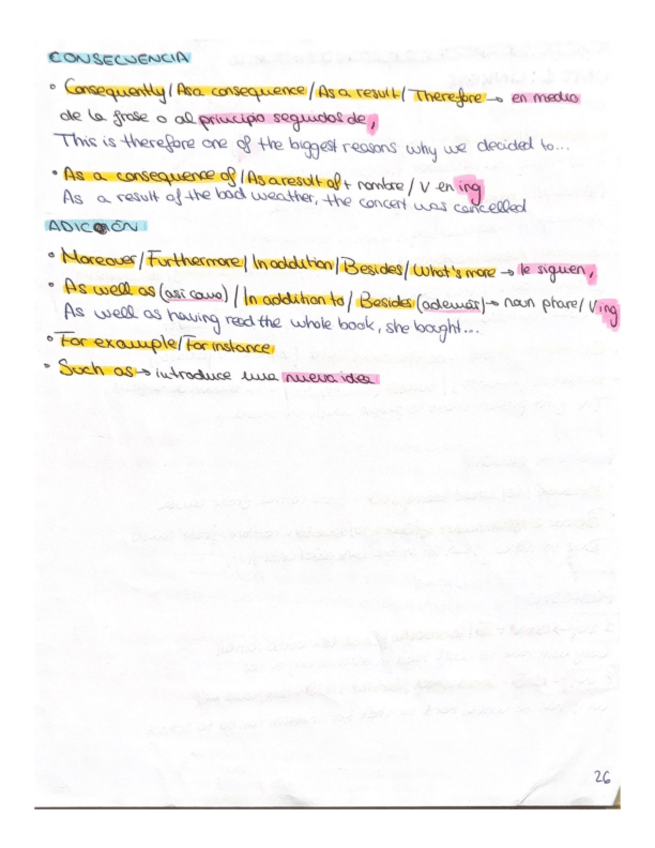 CONSECUENCIA
• Consequently/As a consequence/As a result/Therefore → en medio
de la frase o al principio seguidos de,
This is therefore one of the biggest reasons why we decided to...
• As a consequence of/As a result of + nombre/V en ing
As a result of the bad weather, the concert was cancelled
ADICIÓN
• Moreover/Furthermore/In addition/Besides/What's more → le siguen,
• As well as (así como)/In addition to/Besides (además) → noun phare/Ving
As well as having read the whole book, she bought...
• For example/For instance,
• Such as → introduce una nueva idea
26